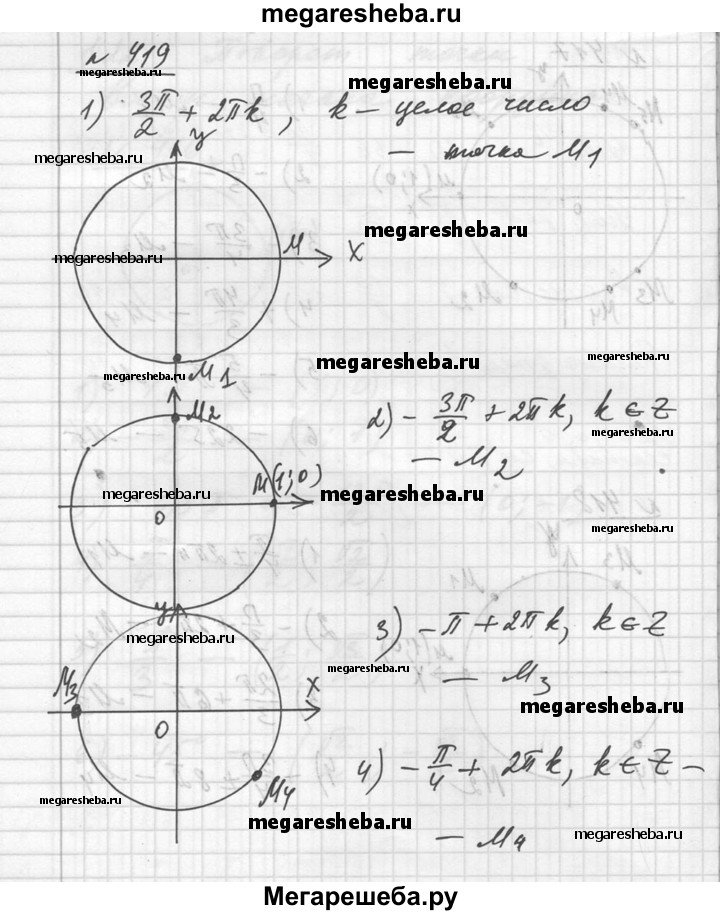 megaresheba.ru
№ 419
megaresheba.ru
megaresheba.ru
1) 3π/2 + 2πk, k – целое число
– точка M1
y
megaresheba.ru
megaresheba.ru
M
X
megaresheba.ru
megaresheba.ru
megaresheba.ru
megaresheba.ru
M1
M2
2) - 3π/2 + 2πk, k ∈ Z
megaresheba.ru
– M2
M(1;0)
megaresheba.ru
megaresheba.ru
0
megaresheba.ru
y
3) -π + 2πk, k ∈ Z
megaresheba.ru
megaresheba.ru
– M3
M3
X
megaresheba.ru
0
4) - π/4 + 2πk, k ∈ Z –
M4
megaresheba.ru
megaresheba.ru
– M4
megaresheba.ru
Мегарешеба.ру